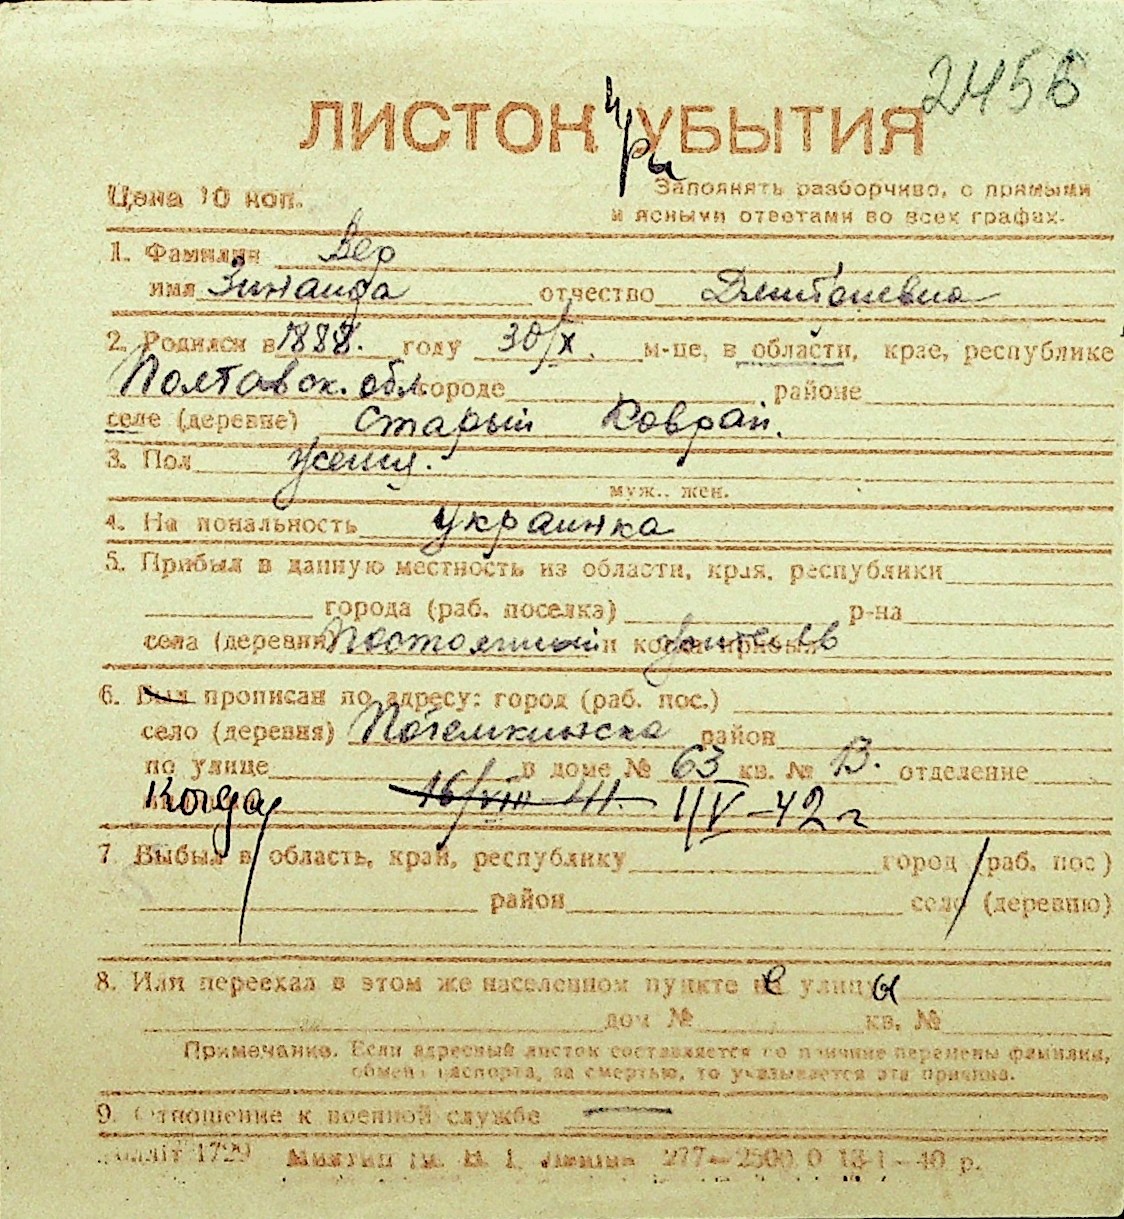 2456
ЛИСТОК УБЫТИЯ
При
Цена 10 коп.
Заполнять разборчиво, с прямыми
и ясными ответами во всех графах.
1. Фамилия Вер
имя Зинаида отчество
2. Родился в 1888. году 30/X. м-це, в области, крае, республике
Полтавск. обл. городе районе
селе (деревне) Старый Коврай.
3. Пол женщ.
муж., жен.
4. Национальность украинка
5. Прибыл в данную местность из области, края, республики
города (раб. поселка) р-на
села (деревни) и когда прибыл
6. Был прописан по адресу: город (раб. пос.)
село (деревня) Потемкинска район
по улице в доме № 63 кв. № В. отделение
Когда 16/VIII-41. 1/V-42 г
7. Выбыл в область, край, республику город (раб. пос)
район село (деревню)
8. Или переехал в этом же населенном пункте с улицы
дом № кв. №
Примечание. Если адресный листок составляется по причине перемены фамилии,
обмена паспорта, за смертью, то указывается эта причина.
9. Отношение к военной службе —
1729 277—2500 0 13-1—40 р.